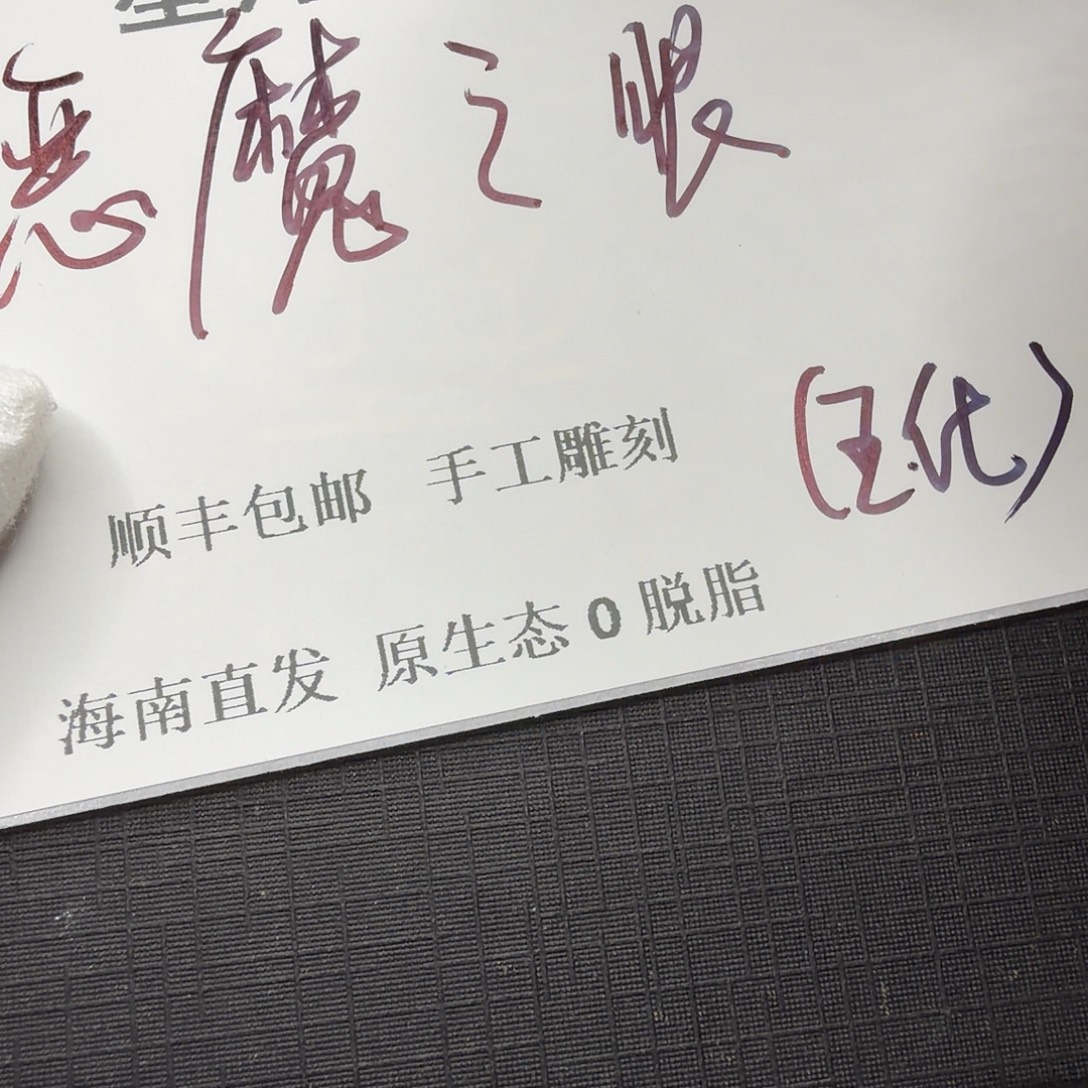 恶魔之眼
(玉化)
顺丰包邮 手工雕刻
海南直发 原生态0脱脂